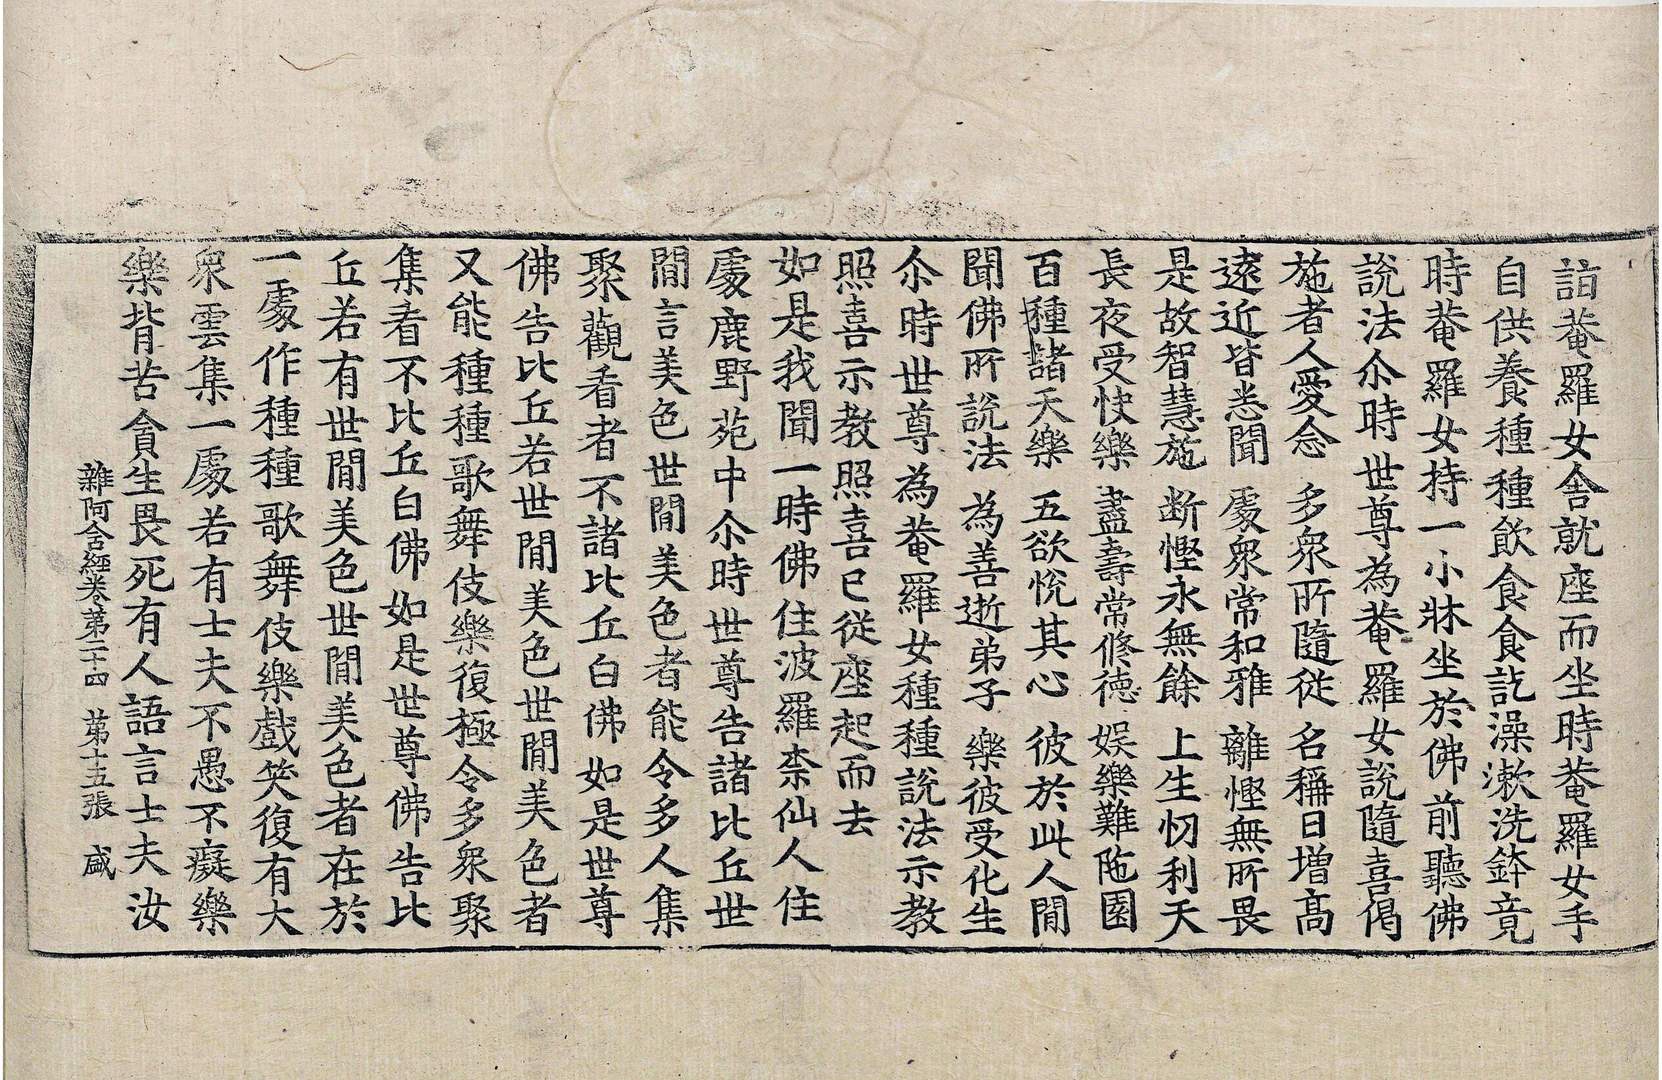 詣菴羅女舍就座而坐時菴羅女手
自供養種種飲食食訖澡漱洗鉢竟
時菴羅女持一小牀坐於佛前聽佛
說法尒時世尊為菴羅女說隨喜偈
施者人愛念 多衆所隨從 名稱日增高
遠近皆悉聞 處衆常和雅 離慳無所畏
是故智慧施 断慳永無餘 上生忉利天
長夜受快樂 盡壽常修德 娛樂難陁園
百種諸天樂 五欲悅其心 彼於此人閒
聞佛所說法 為善逝弟子 樂彼受化生
尒時世尊為菴羅女種種說法示教
照喜示教照喜已從座起而去
如是我聞一時佛住波羅柰仙人住
處鹿野苑中尒時世尊告諸比丘世
閒言美色世閒美色者能令多人集
聚觀看者不諸比丘白佛如是世尊
佛告比丘若世閒美色世閒美色者
又能種種歌舞伎樂復極令多衆聚
集看不比丘白佛如是世尊佛告比
丘若有世閒美色世閒美色者在於
一處作種種歌舞伎樂戲笑復有大
衆雲集一處若有士夫不愚不癡樂
樂背苦貪生畏死有人語言士夫汝
雜阿含經卷第二十四 第十五張 盛